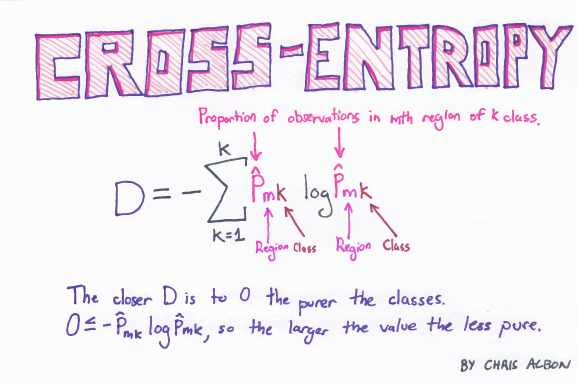 CROSS-ENTROPY
Proportion of observations in mth region of k class.
D = - ∑ₖ₌₁ᴷ P̂mk log P̂mk
Region Class Region Class
The closer D is to 0 the purer the classes.
0 ≤ - P̂mk log P̂mk, so the larger the value the less pure.
BY CHRIS ALBON